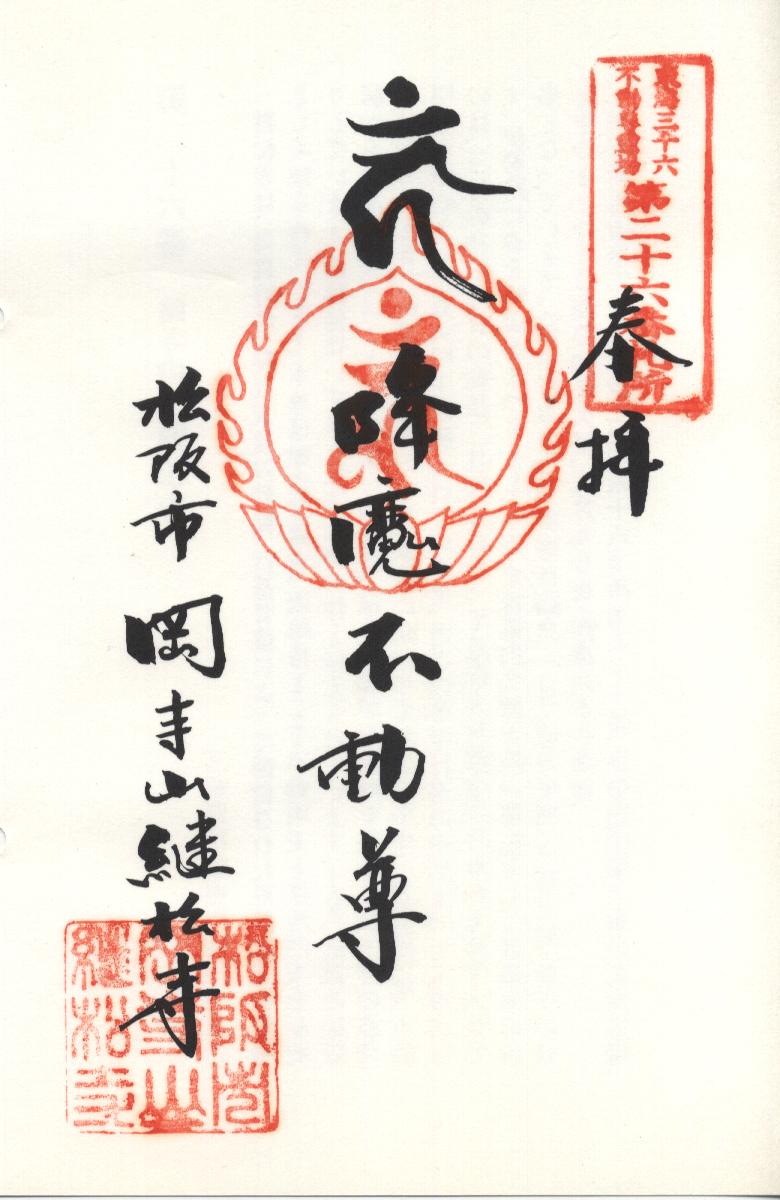 東海三十六
不動尊霊場
第二十六番札所
奉拝
降魔不動尊
松阪市 岡寺山継松寺
松阪市
岡寺山
継松寺